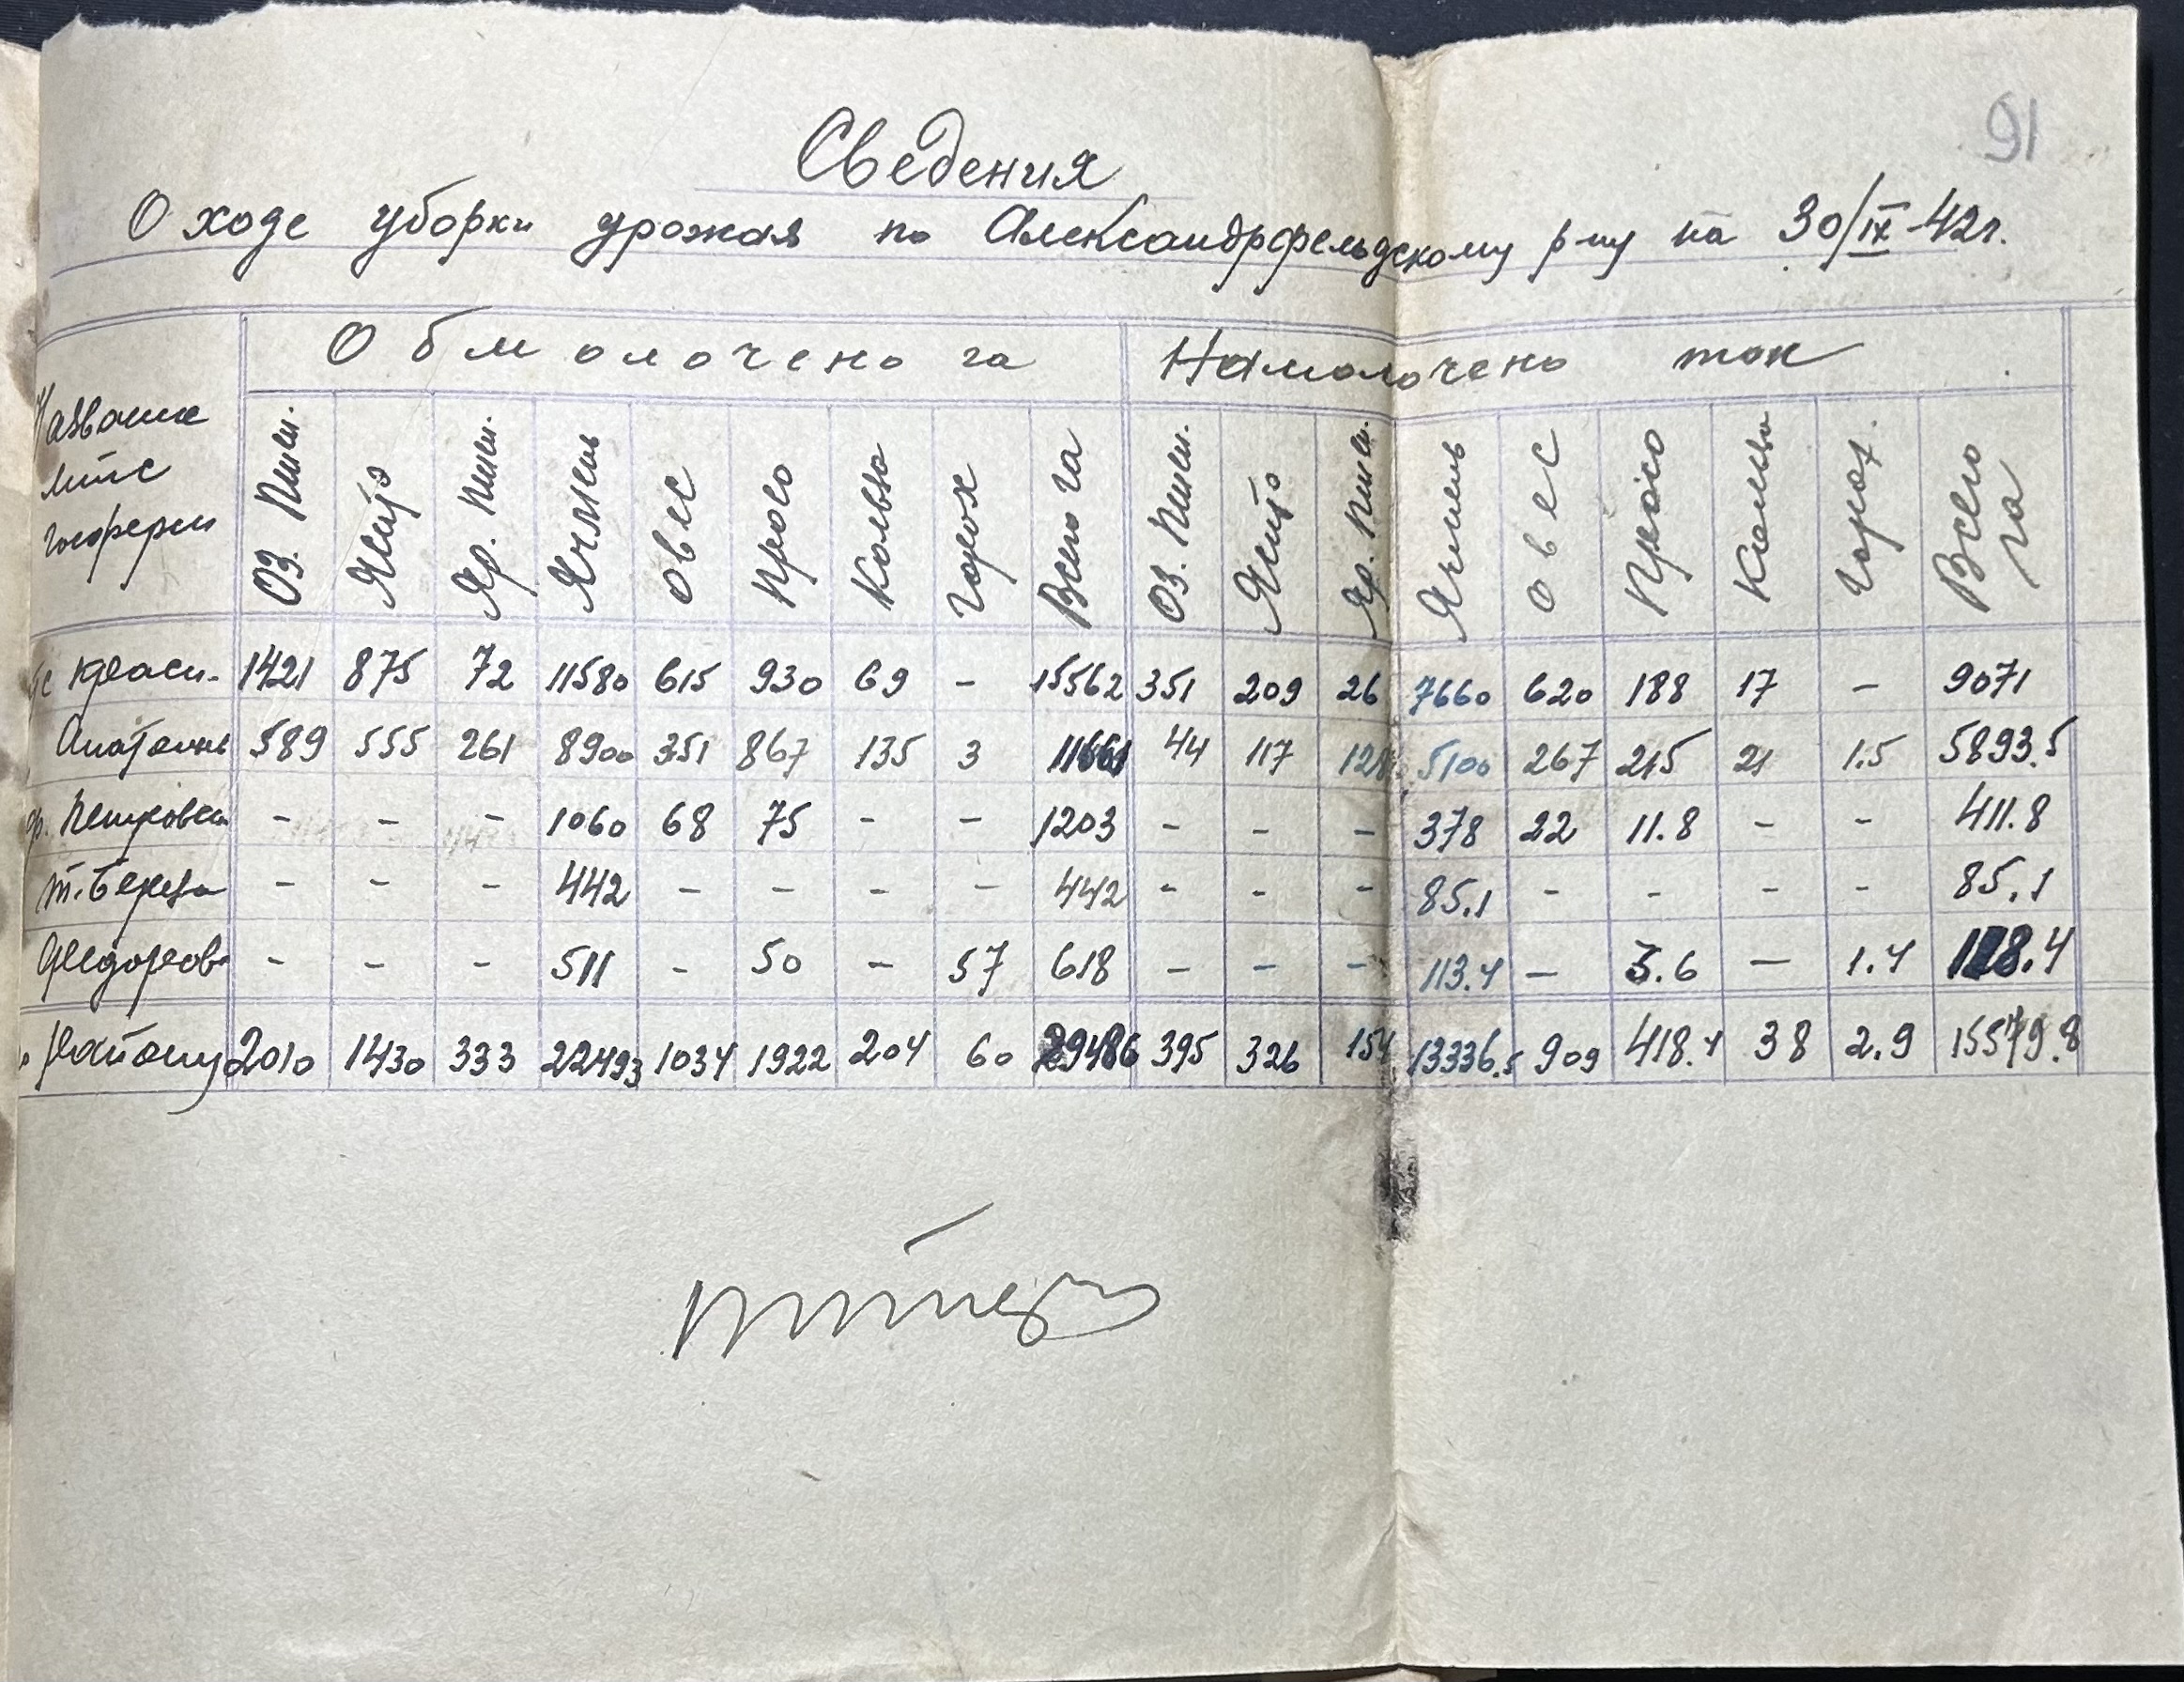 91
Сведения
О ходе уборки урожая по Александрфельдскому р-ну на 30/IX-42г.
Название мтс Обмолочено га Намолочено тон
Оз. Пшен. Яр. Пшен. Ячмень Овес Просо Кольза Горох Всего га Оз. Пшен. Яр. Пшен. Ячмень Овес Просо Кольза Горох. Всего га
1421 875 72 11580 615 930 69 - 15562 351 209 26 7660 620 188 17 - 9071
589 555 261 8900 351 867 135 3 11661 44 117 128 5100 267 215 21 1.5 5893.5
- - - 1060 68 75 - - 1203 - - - 378 22 11.8 - - 411.8
- - - 442 - - - - 442 - - - 85.1 - - - - 85.1
- - - 511 - 50 - 57 618 - - - 113.4 - 3.6 - 1.4 118.4
Району 2010 1430 333 22493 1034 1922 204 60 29486 395 326 154 13336.5 909 418.4 38 2.9 15579.8